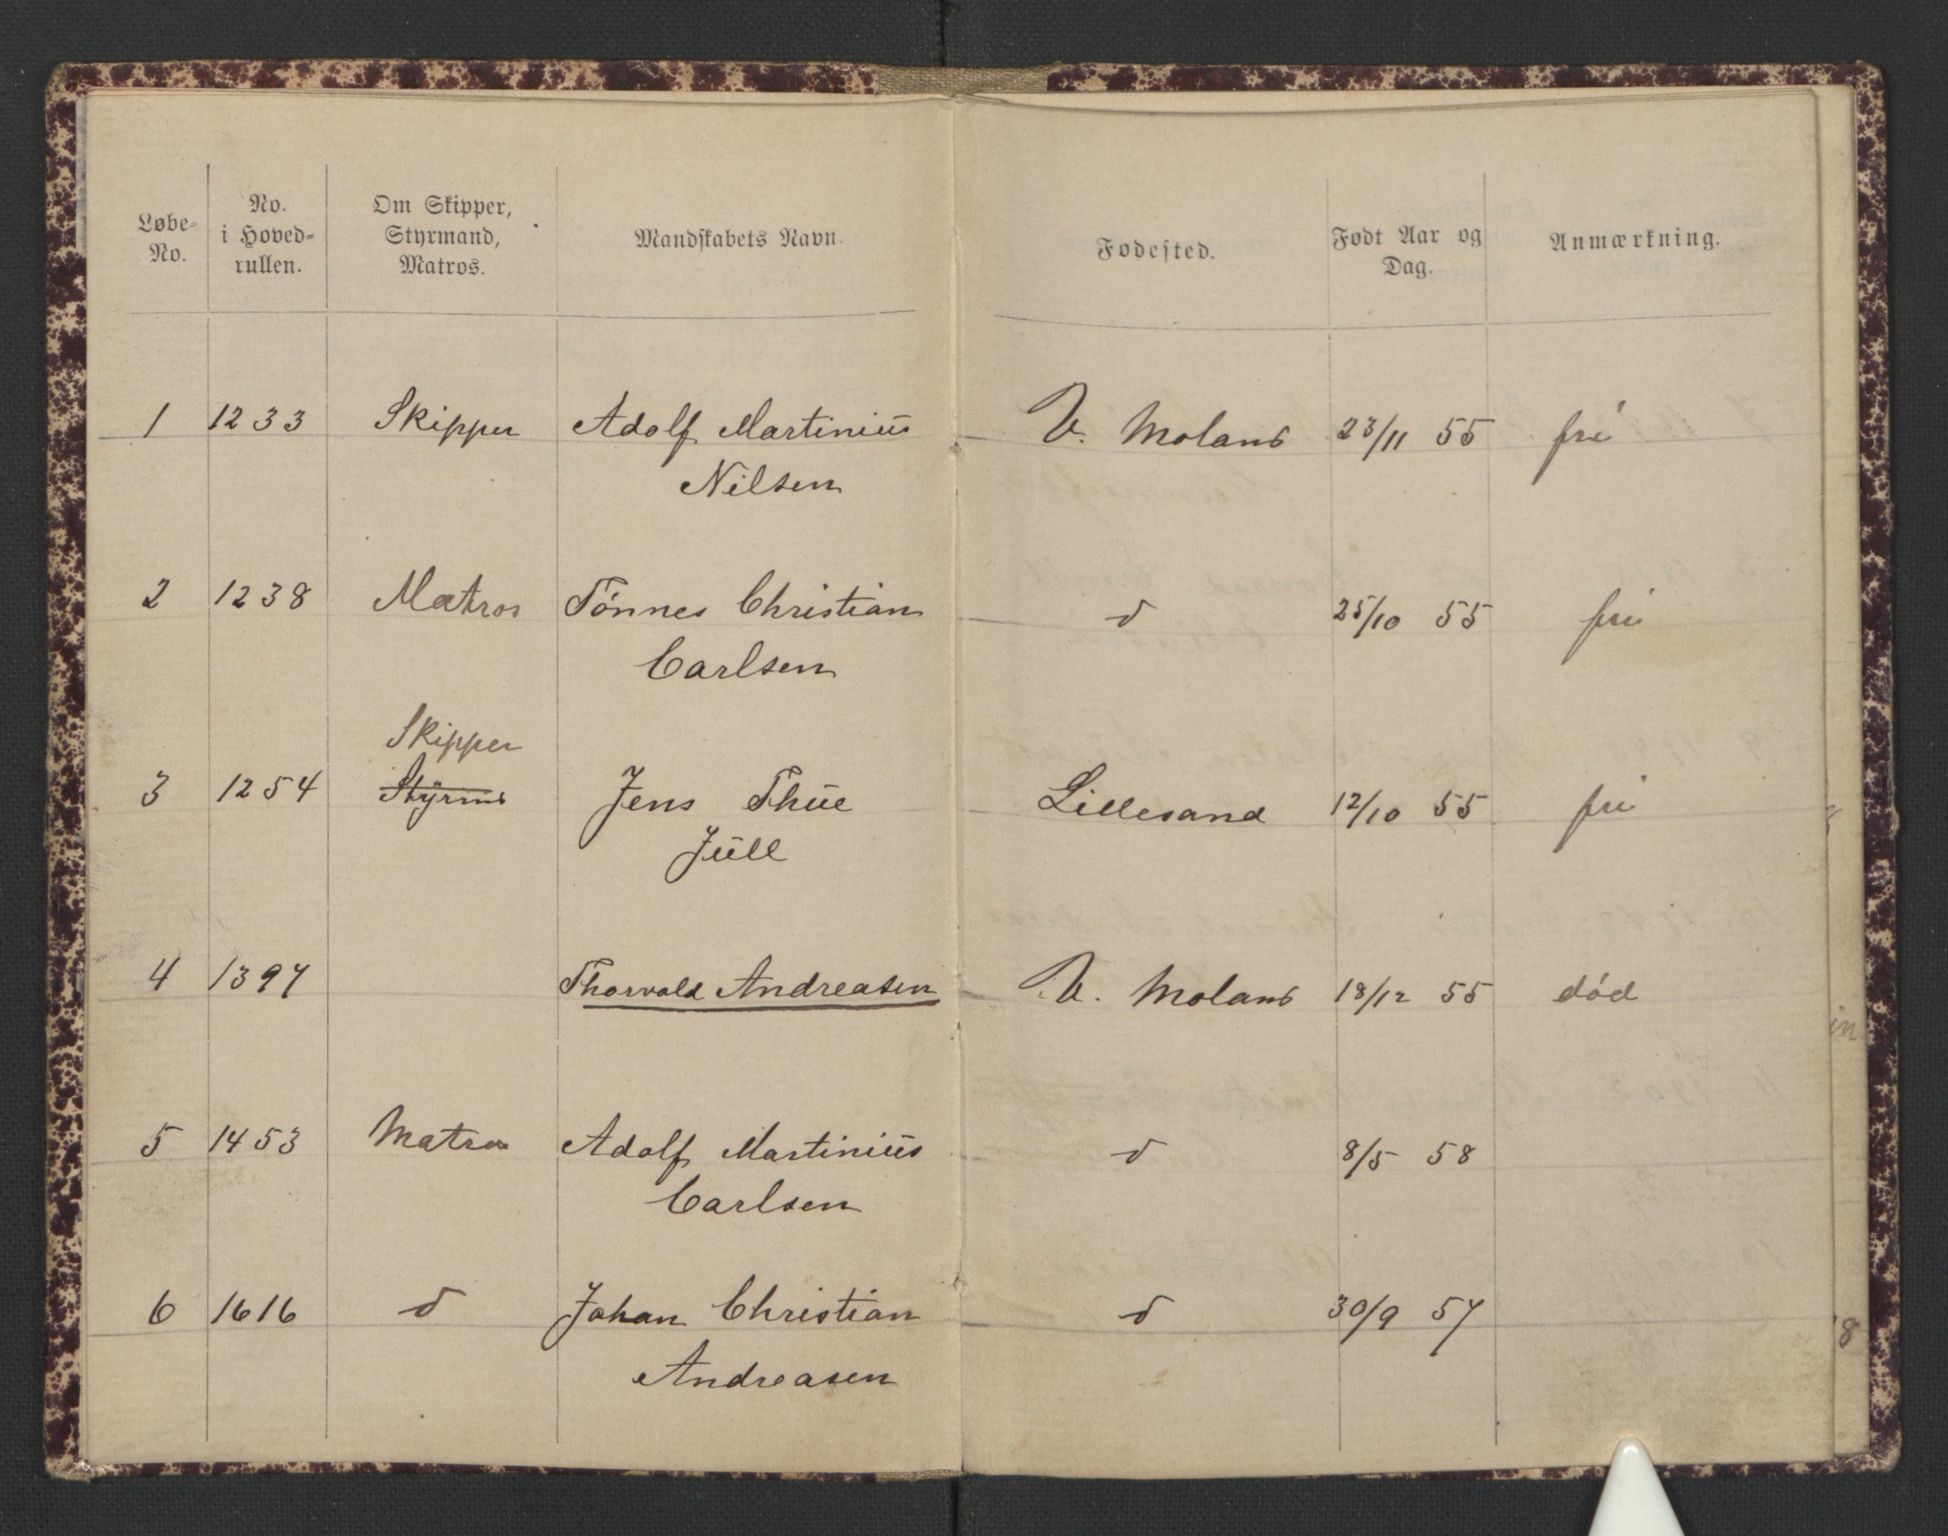 Løbe-No. | No. i Hoved-rullen. | Om Skipper, Styrmand, Matros. | Mandskabets Navn. | Fødested. | Født Aar og Dag. | Anmærkning.
1 | 1233 | Skipper | Adolf Martinius | V. Moland | 23/11 55 | fri
Nilsen
2 | 1238 | Matros | Tönnes Christian | d | 25/10 55 | fri
Carlsen
Skipper
3 | 1254 | Styrmd | Jens Thue | Lillesand | 12/10 55 | fri
Juell
4 | 1397 | Thorvald Andreasen | V. Moland | 18/12 55 | död
5 | 1453 | Matros | Adolf Martinius | d | 8/5 58
Carlsen
6 | 1616 | d | Johan Christian | d | 30/9 57
Andreasen